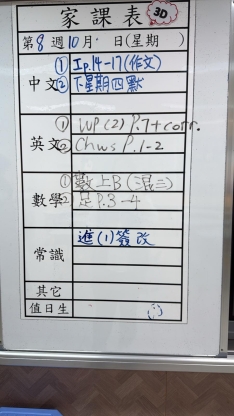 家課表 3D
第8週10月 日(星期 )
中文 ① Ip.14-17(作文)
② 下星期四默
英文 ① WP(2) P.7+corr.
② Chws P.1-2
數學 ① 數上B(混三)
② 足P.3-4
常識 進(1)簽改
其它
值日生